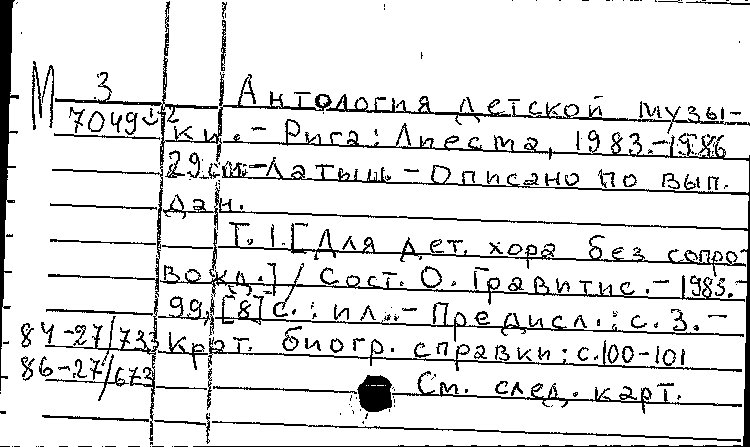 М 3
7049
Антология детской музы-
ки. - Рига: Лиесма, 1983.-1986
29см.-Латыш.-Описано по вып.
дан.
Т. 1. [Для дет. хора без сопро-
вожд.] / Сост. О. Гравитис. - 1983. -
99, [8] с.: ил. - Предисл.: с. 3. -
84-27/733 Крат. биогр. справки: с. 100-101
86-27/673
См. след. карт.